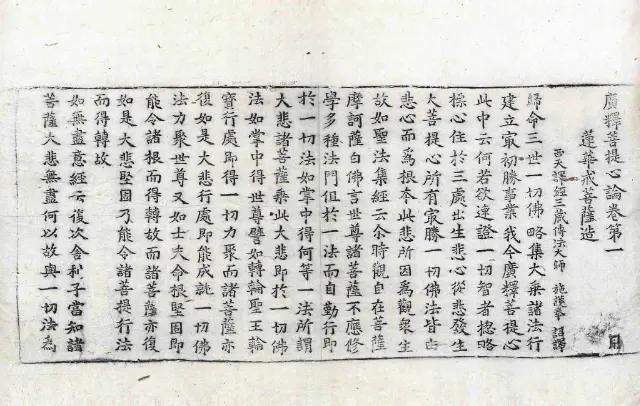 廣釋菩提心論卷第一
蓮華戒菩薩造
西天譯經三藏傳法大師施護奉 詔譯
歸命三世一切佛略集大乘諸法行
建立冣初勝事業我今廣釋菩提心
此中云何若欲速證一切智者揔略
摽心住於三處出生悲心從悲發生
大菩提心所有冣勝一切佛法皆由
悲心而爲根本此悲所因爲觀衆生
故如聖法集經云尒時觀自在菩薩
摩訶薩白佛言世尊諸菩薩不應修
學多種法門但於一法而自勤行即
於一切法如掌中得何等一法所謂
大悲諸菩薩乘此大悲即於一切佛
法如掌中得世尊譬如轉輪聖王輪
寳行處即得一切力聚而諸菩薩亦
復如是大悲行處即能成就一切佛
法力聚世尊又如士夫命根堅固即
能令諸根而得轉故而諸菩薩亦復
如是大悲堅固乃能令諸菩提行法
而得轉故
如無盡意經云復次舍利子當知諸
菩薩大悲無盡何以故與一切法爲